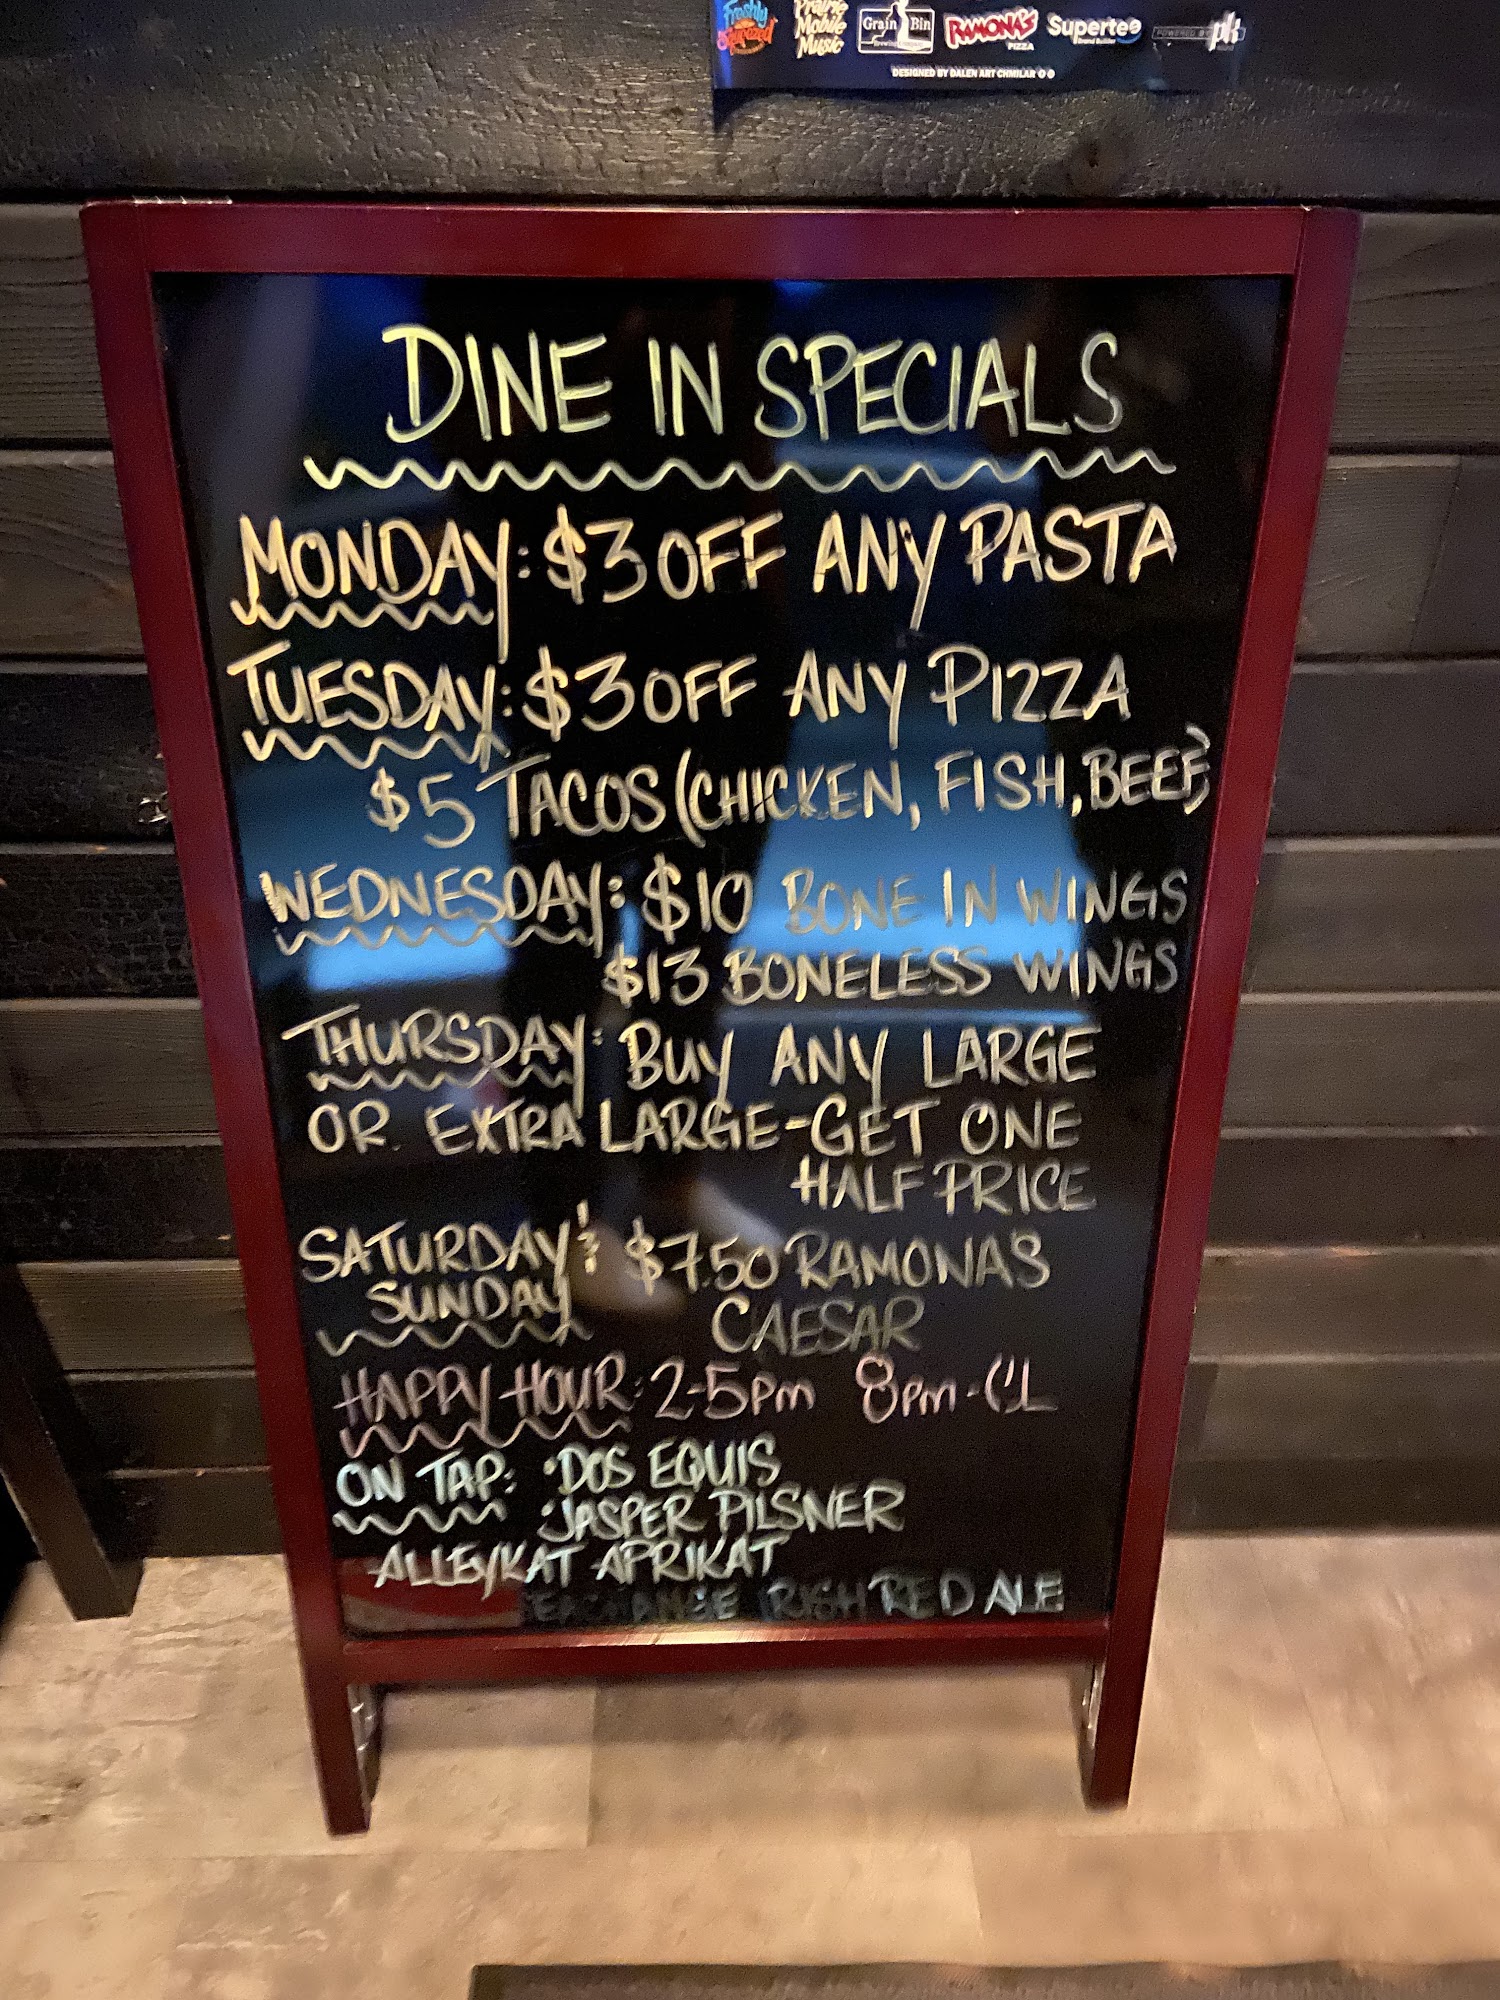 Freshly Squeezed
Prairie Mobile Music
Grain Bin
RAMONA'S PIZZA
Supertee
Brand Builder
POWERED BY pk
DESIGNED BY DALEN ART CHMILAR
DINE IN SPECIALS
MONDAY: $3 OFF ANY PASTA
TUESDAY: $3 OFF ANY PIZZA
$5 TACOS (CHICKEN, FISH, BEEF)
WEDNESDAY: $10 BONE IN WINGS
$13 BONELESS WINGS
THURSDAY: BUY ANY LARGE
OR EXTRA LARGE - GET ONE
HALF PRICE
SATURDAY & $7.50 RAMONA'S
SUNDAY CAESAR
HAPPY HOUR: 2-5pm 8pm-CL
ON TAP: • DOS EQUIS
• JASPER PILSNER
ALLEYKAT APRIKAT
EXCHANGE IRISH RED ALE